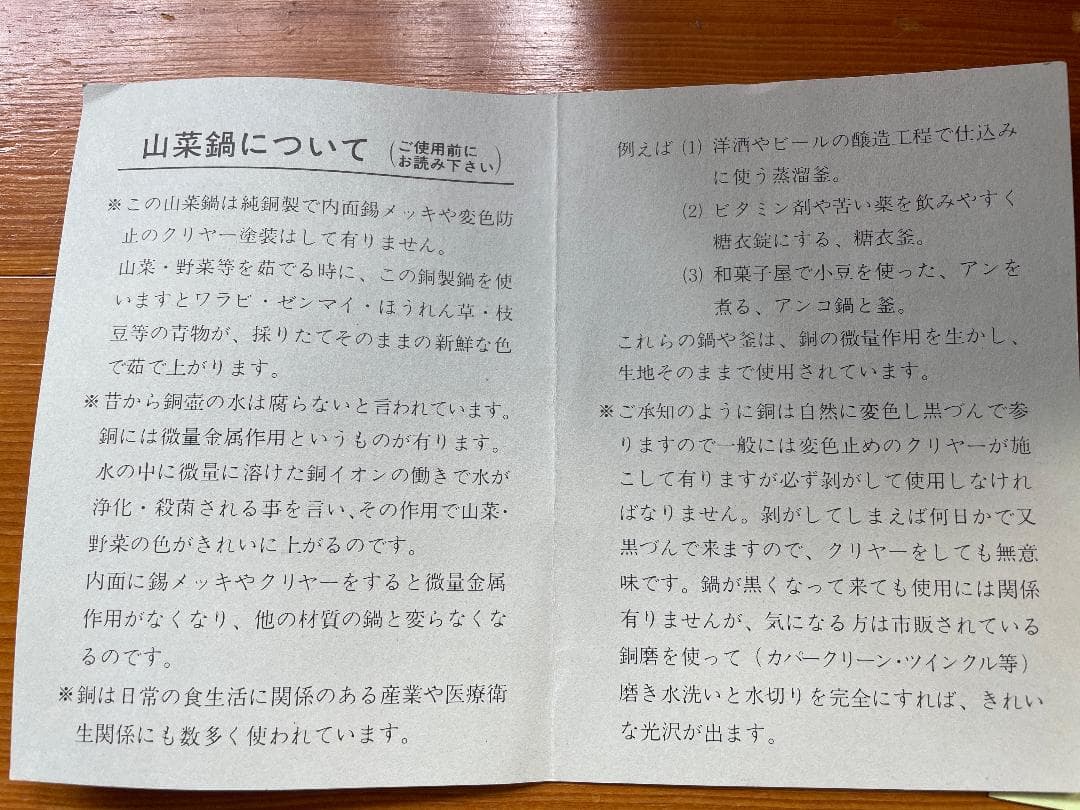 山菜鍋について（ご使用前に
お読み下さい）
※この山菜鍋は純銅製で内面錫メッキや変色防
止のクリヤー塗装はして有りません。
山菜・野菜等を茹でる時に、この銅製鍋を使
いますとワラビ・ゼンマイ・ほうれん草・枝
豆等の青物が、採りたてそのままの新鮮な色
で茹で上がります。
※昔から銅壺の水は腐らないと言われています。
銅には微量金属作用というものが有ります。
水の中に微量に溶けた銅イオンの働きで水が
浄化・殺菌される事を言い、その作用で山菜・
野菜の色がきれいに上がるのです。
内面に錫メッキやクリヤーをすると微量金属
作用がなくなり、他の材質の鍋と変らなくな
るのです。
※銅は日常の食生活に関係のある産業や医療衛
生関係にも数多く使われています。
例えば (1) 洋酒やビールの醸造工程で仕込み
に使う蒸溜釜。
(2) ビタミン剤や苦い薬を飲みやすく
糖衣錠にする、糖衣釜。
(3) 和菓子屋で小豆を使った、アンを
煮る、アンコ鍋と釜。
これらの鍋や釜は、銅の微量作用を生かし、
生地そのままで使用されています。
※ご承知のように銅は自然に変色し黒づんで参
りますので一般には変色止めのクリヤーが施
こして有りますが必ず剝がして使用しなけれ
ばなりません。剝がしてしまえば何日かで又
黒づんで来ますので、クリヤーをしても無意
味です。鍋が黒くなって来ても使用には関係
有りませんが、気になる方は市販されている
銅磨を使って（カパークリーン・ツインクル等）
磨き水洗いと水切りを完全にすれば、きれい
な光沢が出ます。